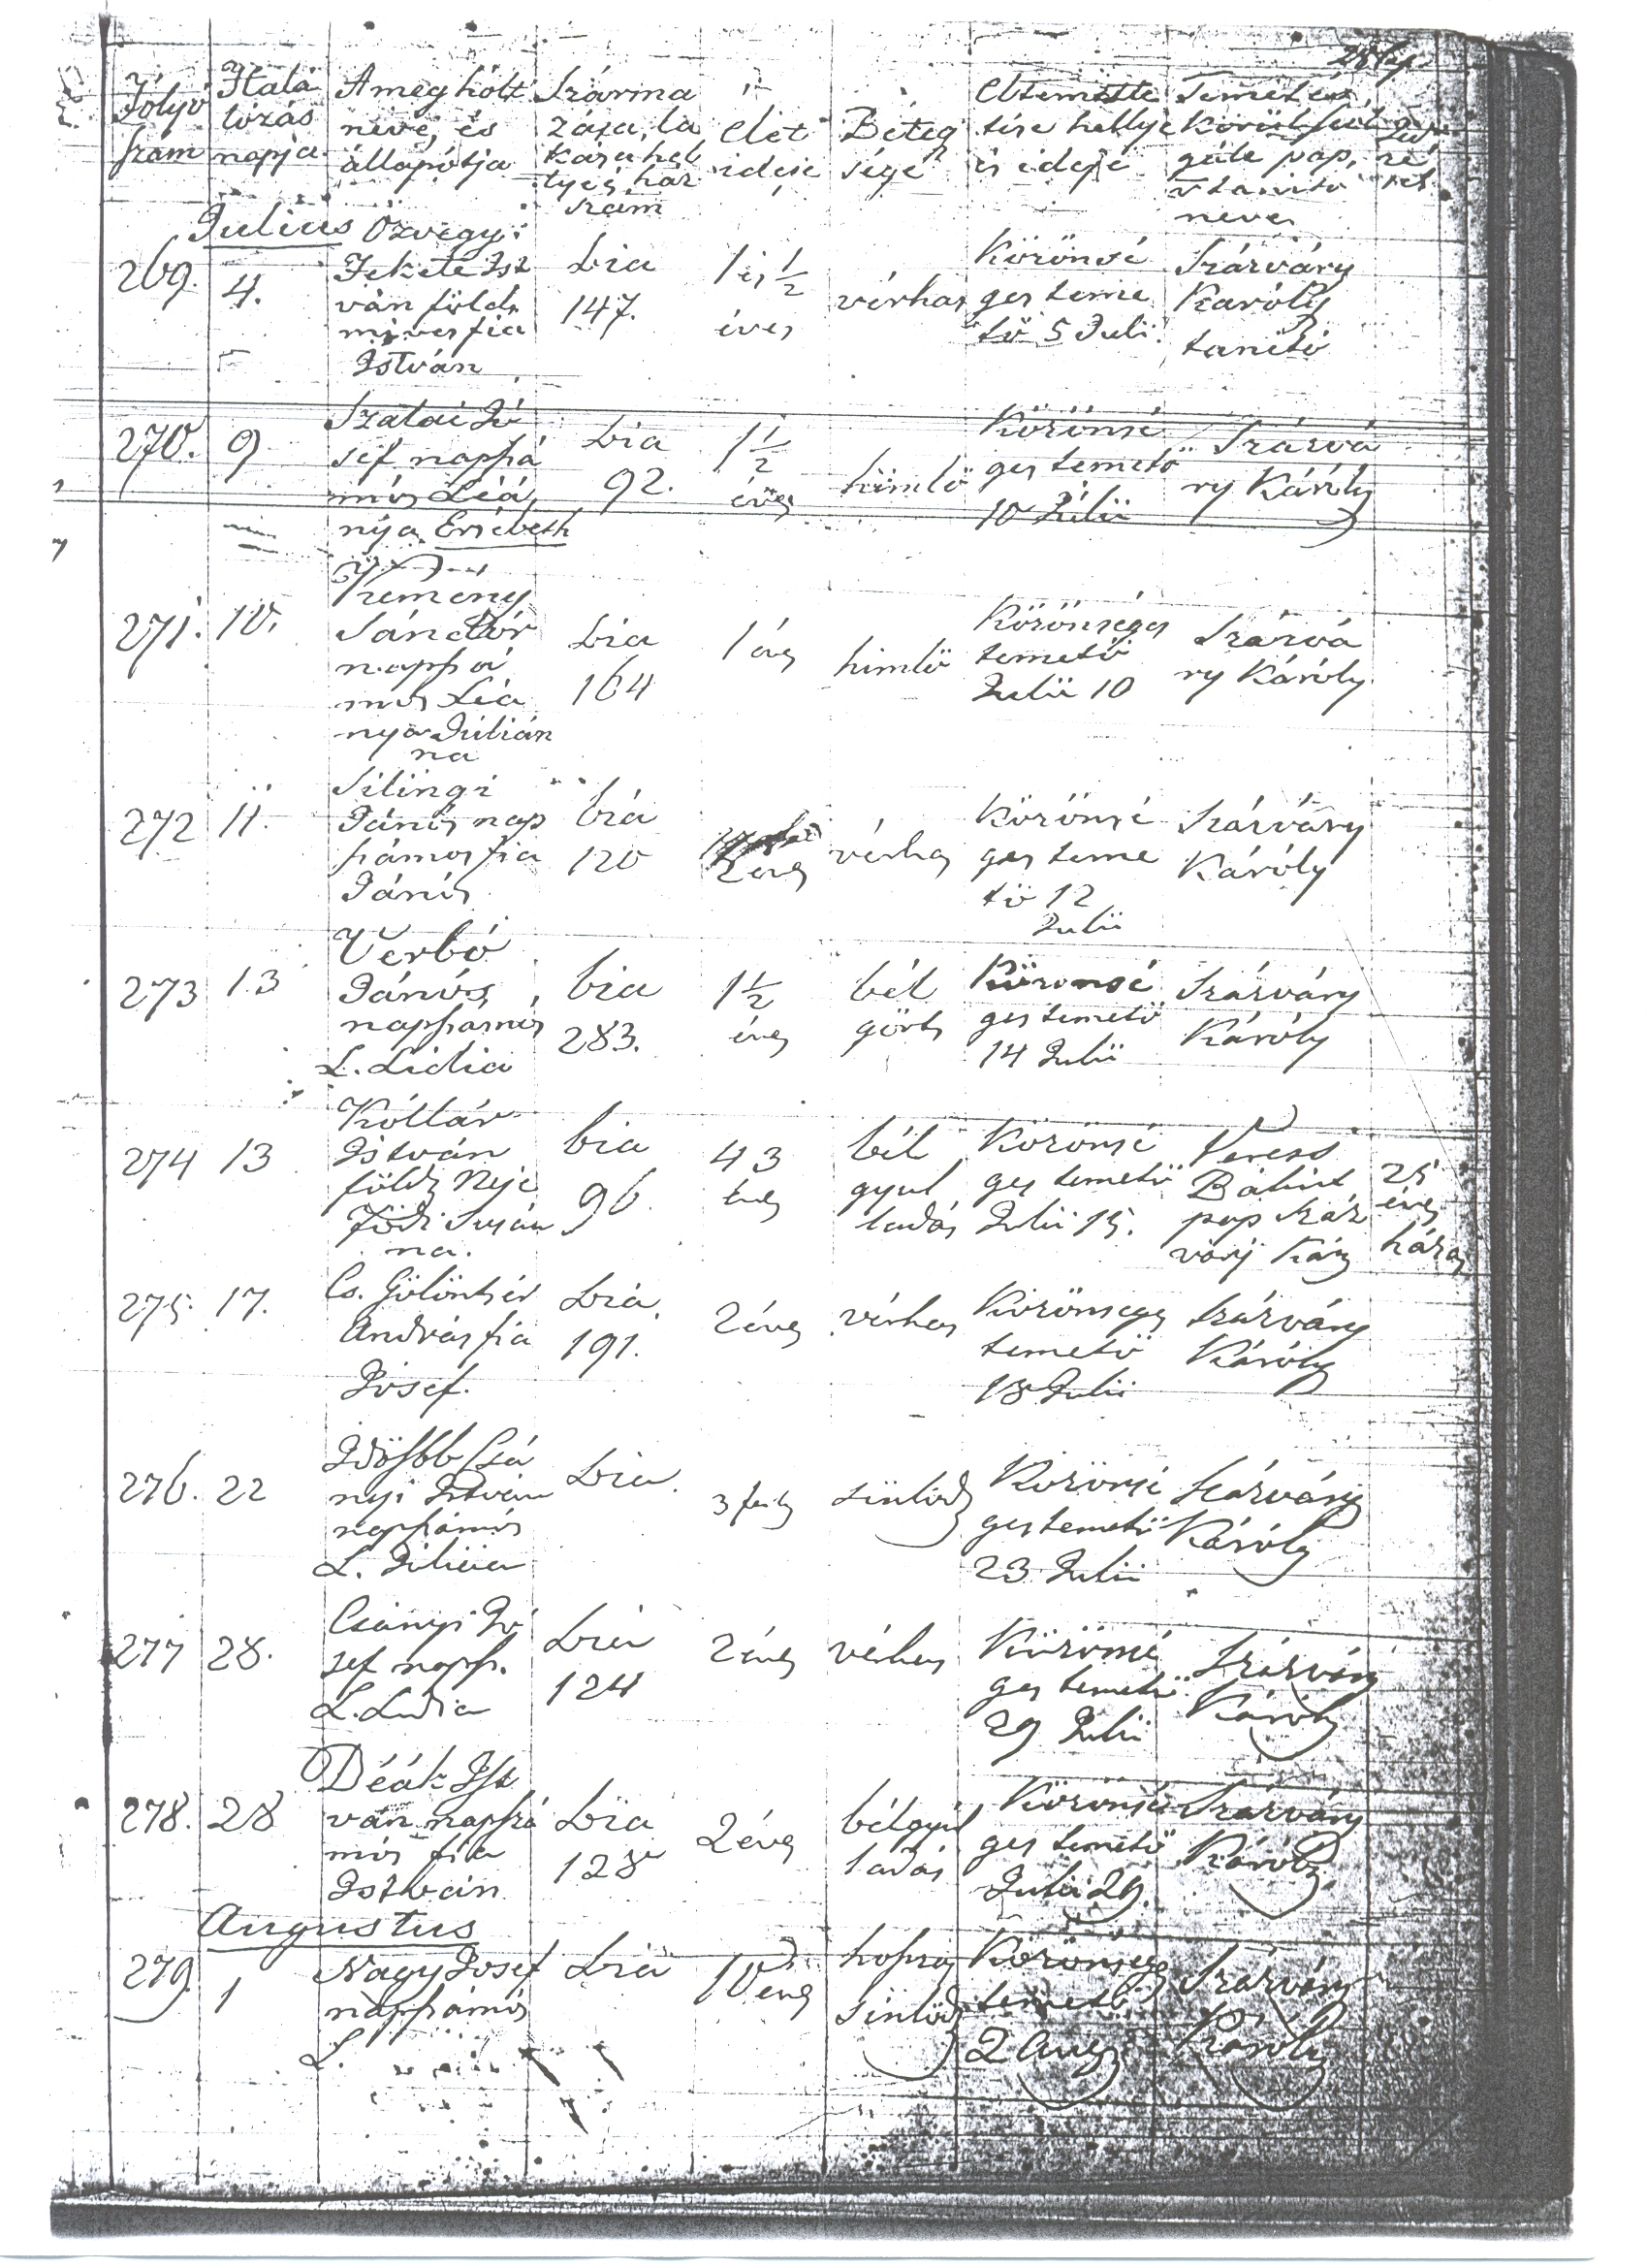 Fólyó
szám
Halá
lozás
napja
A meg hólt
neve, és
állapotja
Szárma
zása, la
kása hel
lye és ház
szám
élet
ideje
Beteg
sége
Eltemette
tése hellye
és ideje
Temetés
gáló pap,
v tanitó
neve
Julius
269.
4.
Özvegy
Fekete Ist
ván föld
mives fia
István
bia
147.
1 és 1/2
éves
vérhas
Közönsé
ges teme
tő 5 Juli.
Szárváry
Károly
tanitó
270.
9
Szalai Jó
sef napszá
mos Leá
nya Ersébeth
bia
92.
1 1/2
éves
himlő
Közönsé
ges temető
10 Julii
Szárvá
ry Károly
271.
10.
Kemény
Sándór
napszá
mos Leá
nya Julián
na
bia
164
1 éves
himlő
Közönséges
temető
Julii 10
Szárvá
ry Károly
272
11.
Silingi
Jánós nap
számos fia
Jánós
bia
120
2 éves
vérhas
Közönsé
ges teme
tő 12
Julii
Szárváry
Károly
273
13
Verbó
Jánós
napszámos
L. Lidia
bia
283.
1 1/2
éves
bél
görts
Közönsé
ges temető
14 Julii
Szárváry
Károly
274
13
Kóllár
István
földs Neje
Susán
na.
bia
96.
43
éves
bél
gyul
ladás
Közönsé
ges temető
Julii 15.
Veress
Bálint
pap Szár
váry Kár
25
éves
házas
275.
17.
Cs. Gölöntsér
András fia
Jósef.
bia
191.
2 éves
vérhas
Közönséges
temető
18 Julii
Szárváry
Károly
276.
22
Idősbb Csá
nyi István
napszámós
L.
bia.
3
Közönsé
ges temető
23 Julii
Szárváry
Károly
277
28.
Csányi Jó
sef napsz.
L. Lidia
bia
124
2 éves
vérhas
Közönsé
ges temető
29 Julii
Szárváry
Károly
278.
28
Déák Ist
ván napszá
mós fia
István
bia
128
2 éves
bélgyul
ladás
Közönsé
ges temető
Julii 29.
Szárváry
Károly
Augustus
279.
1
Nagy Josef
napszámós
L.
bia
10 éves
Közönséges
temető
2 Aug
Szárváry
Károly